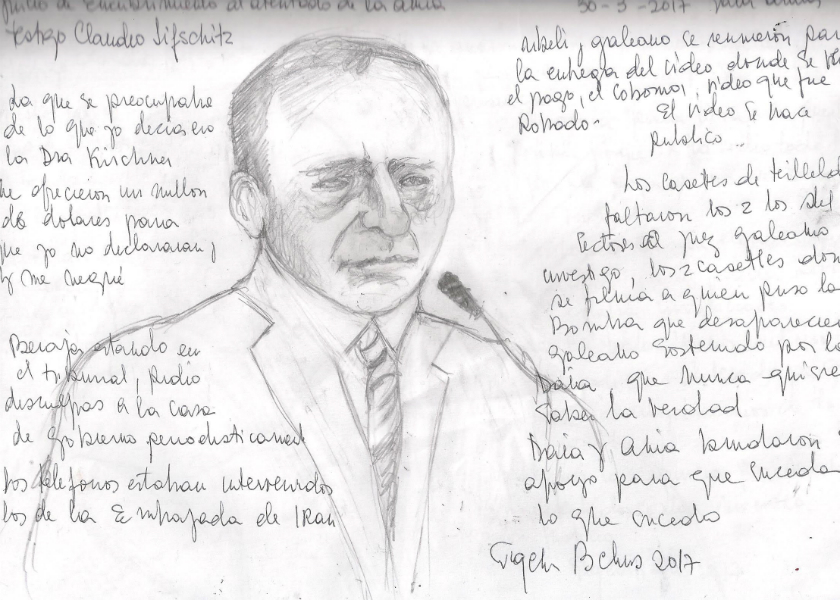 Juicio de Encubrimiento al atentado de la Amia 30-3-2017
testigo Claudio Lifschitz
La que se preocupaba
de lo que yo decia era
la Dra Kirchner
me ofrecieron un millon
de dolares para
que yo no declararan
y me negué
Beraja estando en
el tribunal, pidio
disculpas a la casa
de gobierno periodisticament
Los telefonos estaban intervenidos
los de la Embajada de Iran
y galeano se reunieron par
la entrega del video donde se
el pago, el cohomo, video que fue
Robado-
El video se hace
publico ..
Los casettes de
faltaron los 2 los del
del juez galeano
investigo, los 2 casettes don
se filma a quien puso la
Bomba que desaparecie
galeano sostenido por la
Daia, que nunca quisie
saber la verdad
Daia y Amia brindaron
apoyo para que suceda
lo que sucedo
2017